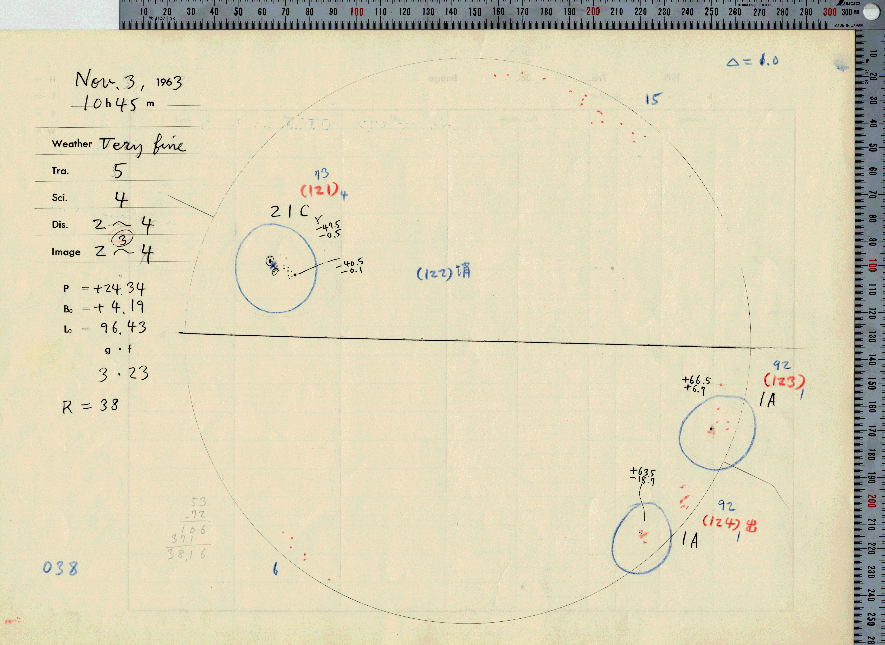 Nov. 3, 1963
10h45m
Weather Very fine
Tra. 5
Sci. 4
Dis. 2 ~ 4
Image 2 ~ 4
3
P = +24.34
B₀ = +4.19
L₀ = 96.43
g · f
3 · 23
R = 38
53
72
106
371
38.16
038
6
15
△ = 1.0
73
(121) 4
21 C
-47.5
-0.5
-40.5
-0.1
(122) 消
92
(123)
1
1A
+66.5
+6.9
+63.5
-15.7
92
(124) 出
1
1A